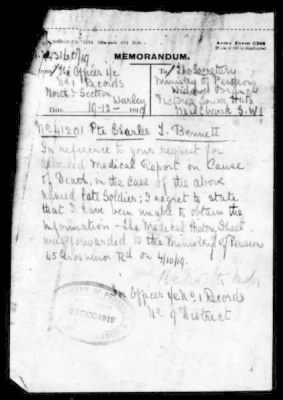 Army Form C348
MEMORANDUM.
From The Officer i/c
No 1 Records
North Section
Warley
Date 19-12-1919
To The Secretary
Ministry of Pensions
Widows Branch
Victoria Tower Hots
Millbank S.W.1
No 41201 Pte Charles T. Bennett
In reference to your request for
detailed Medical Report on Cause
of Death, in the case of the above
named late Soldier; I regret to state
that I have been unable to obtain the
information - The Medical History Sheet
was forwarded to the Ministry of Pensions
45 Grosvenor Rd on 4/10/19.
for Officer i/c No 1 Records
No 9 District
22 DEC 1919